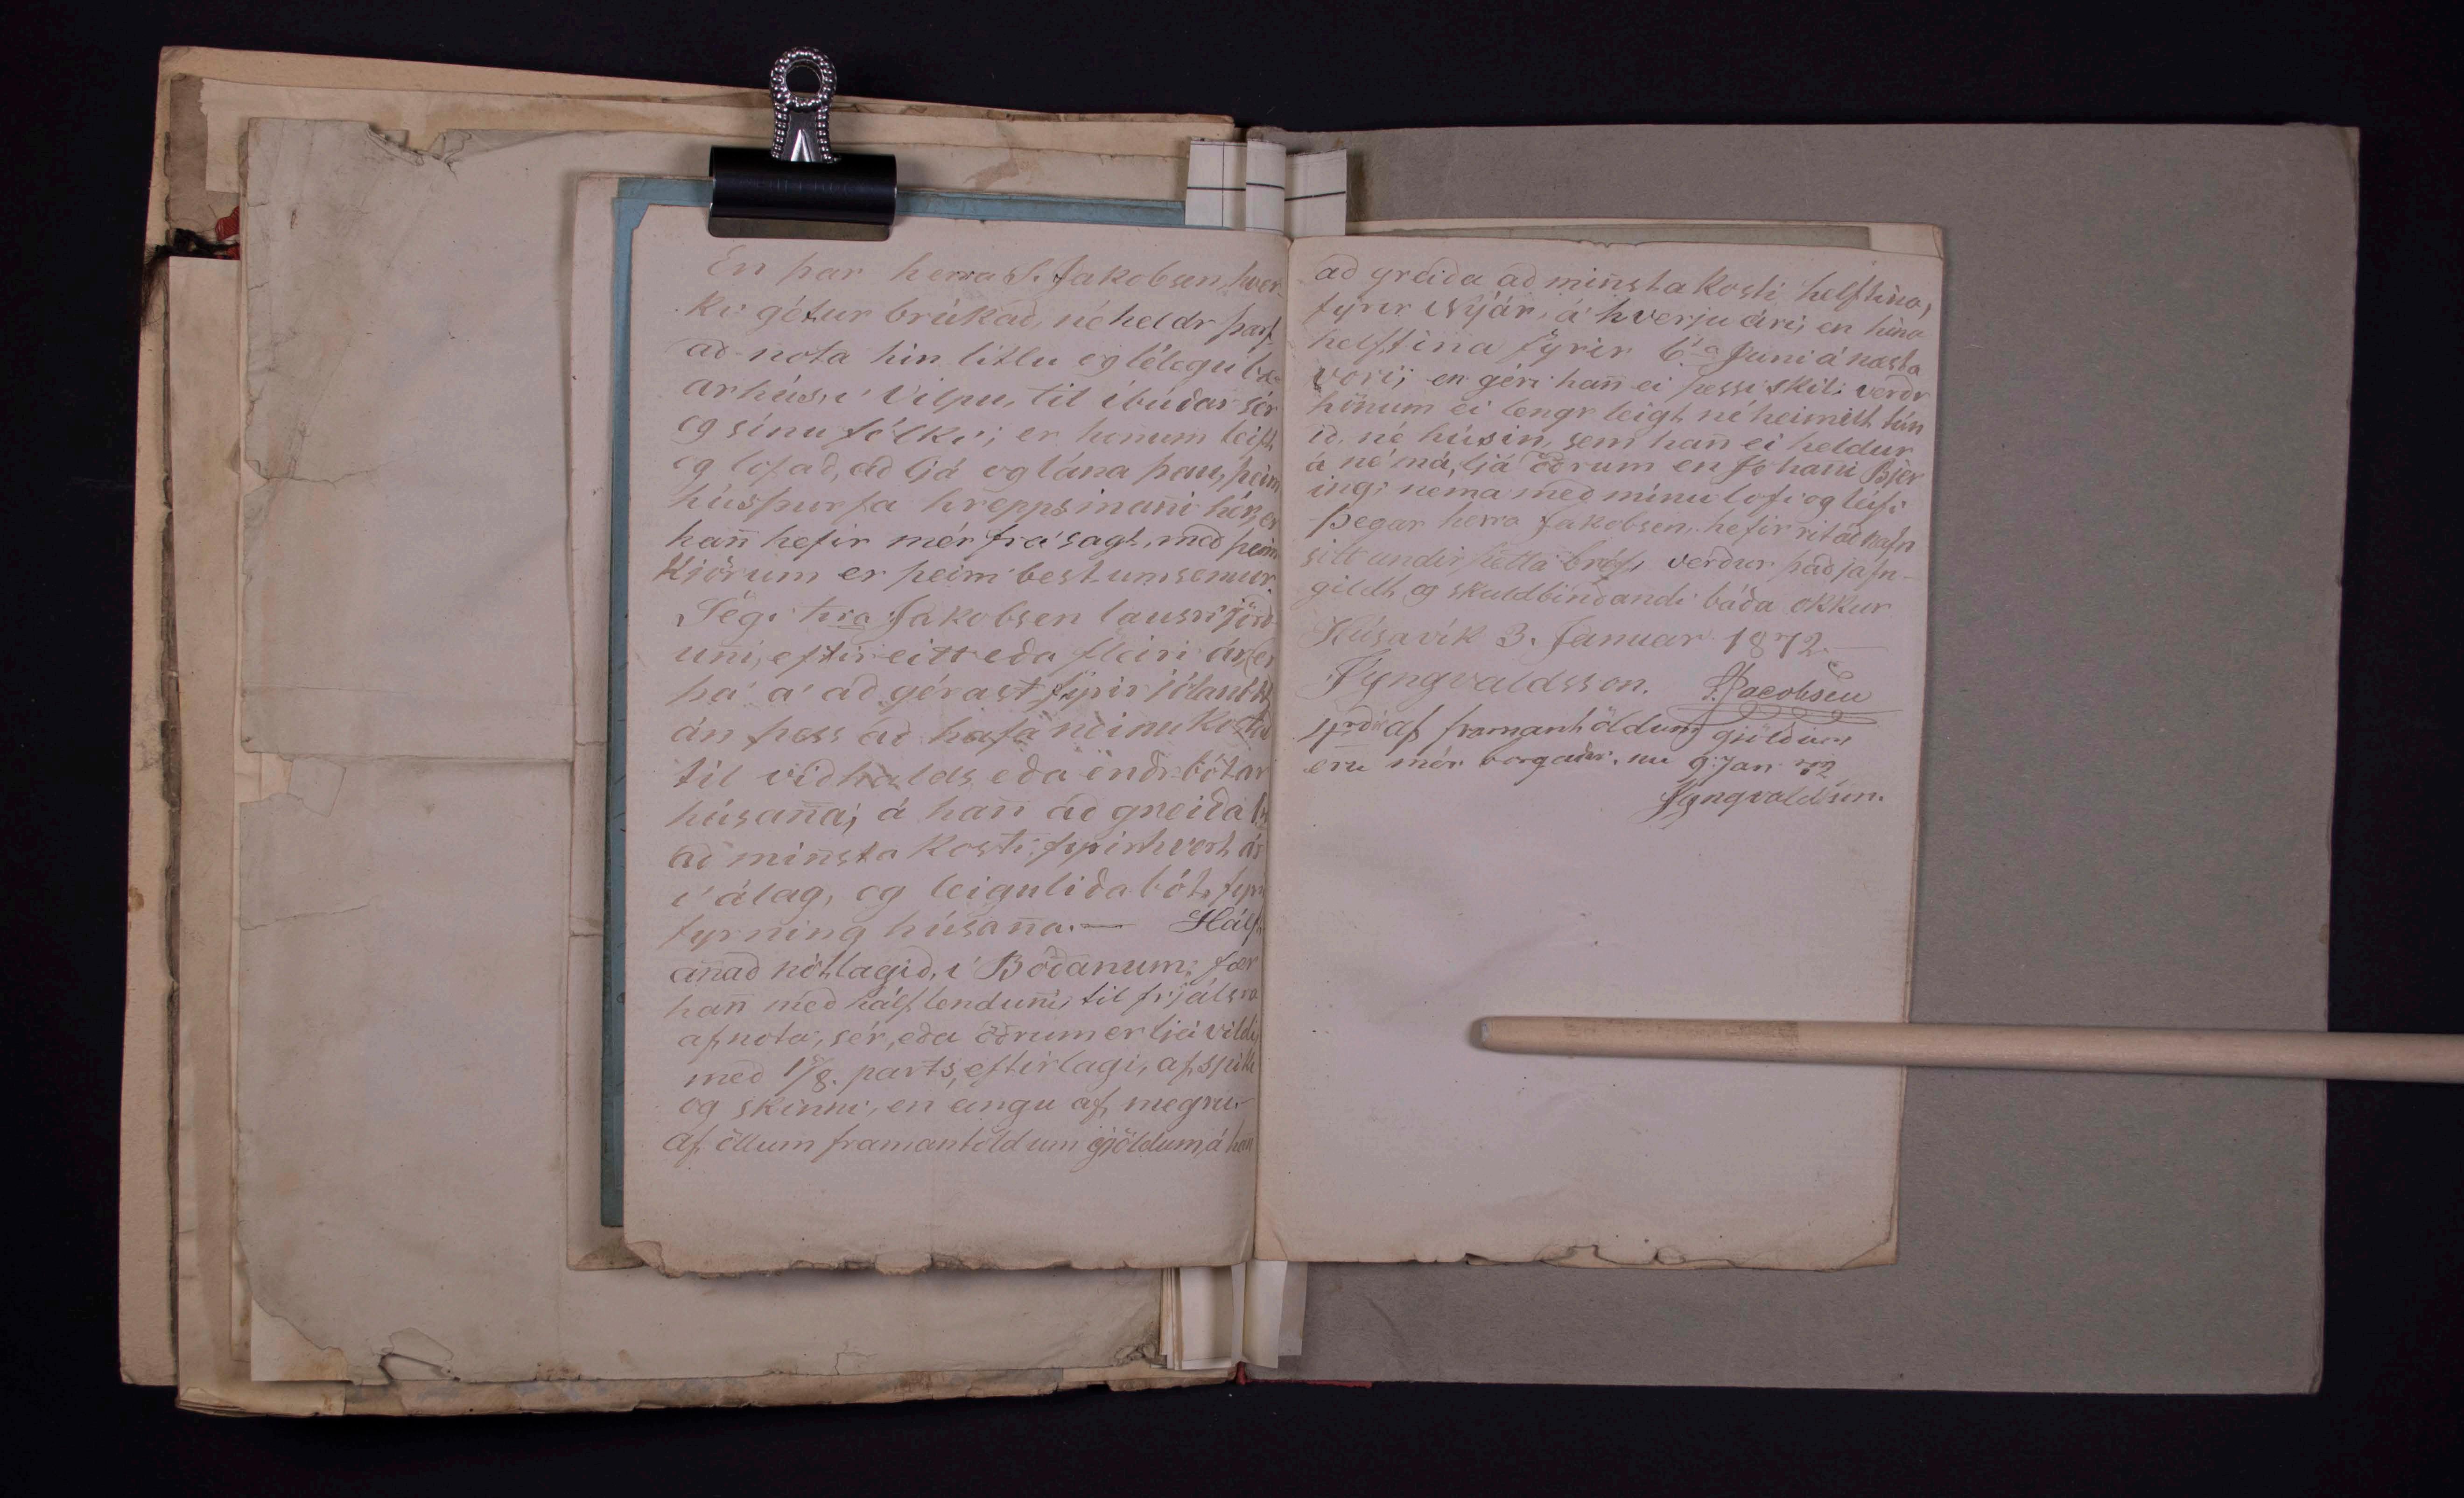 En þar herra S. Jakobsen, hver-
ki gétur brúkað, né heldr þarf
að nota hin litlu og lélegu bæ-
arhús, í Vilpu, til íbúðar sér
og sínu fólki; er honum leift
og lofað, að ljá og lána þau, þeim
húsþurfa hreppsmanni hér, er
hañ hefir mér frá sagt, með þeim
Kjörum er þeim best umsemur.
Ségi hra Jakobsen lausri jörð-
uñi, eftir eitt eða fleiri ár, er
þá á að gérast fyrir jólanótt
án þess að hafa neinu kostað
til viðhalds eða endrbótar
húsaña; á hañ að greiða
að miñsta kosti fyrir hvert ár
í álag, og leiguliðabót, fyrir
fyrning húsaña. — Hálft
añað nótlagið, í Bóðanum; fær
hañ með hálflenduñi, til frjálsra
afnota, sér, eða öðrum er ljá vildi,
með 1/8. parts, eftirlagi, af spiki
og skinni, en eingu af, megru.
Af öllum framantöldum gjöldum, á hañ
að greiða að miñsta kosti helftina,
fyrir Nýár, á hverju ári; en hina
helftina fyrir 6ta Juni á næsta
vori; en géri hañ ei þessi skil; verðr
hönum ei lengr leigt né heimilt tún
ið, né húsin, sem hañ ei heldur
á né má, ljá öðrum en Jóhañi Bjer
ing; néma með mínu lofi og leifi
Þegar herra Jakobsen, hefir ritað nafn
sitt undir þetta bréf, verður það jafn-
gildt og skuldbindandi báða okkur
Húsavík 3. Januar 1872. —
JIyngvaldsson. S. Jacobsen
af framantöldum gjöldum
eru mér borgaðir. nu 9 Jan 72
JIyngvaldsson.